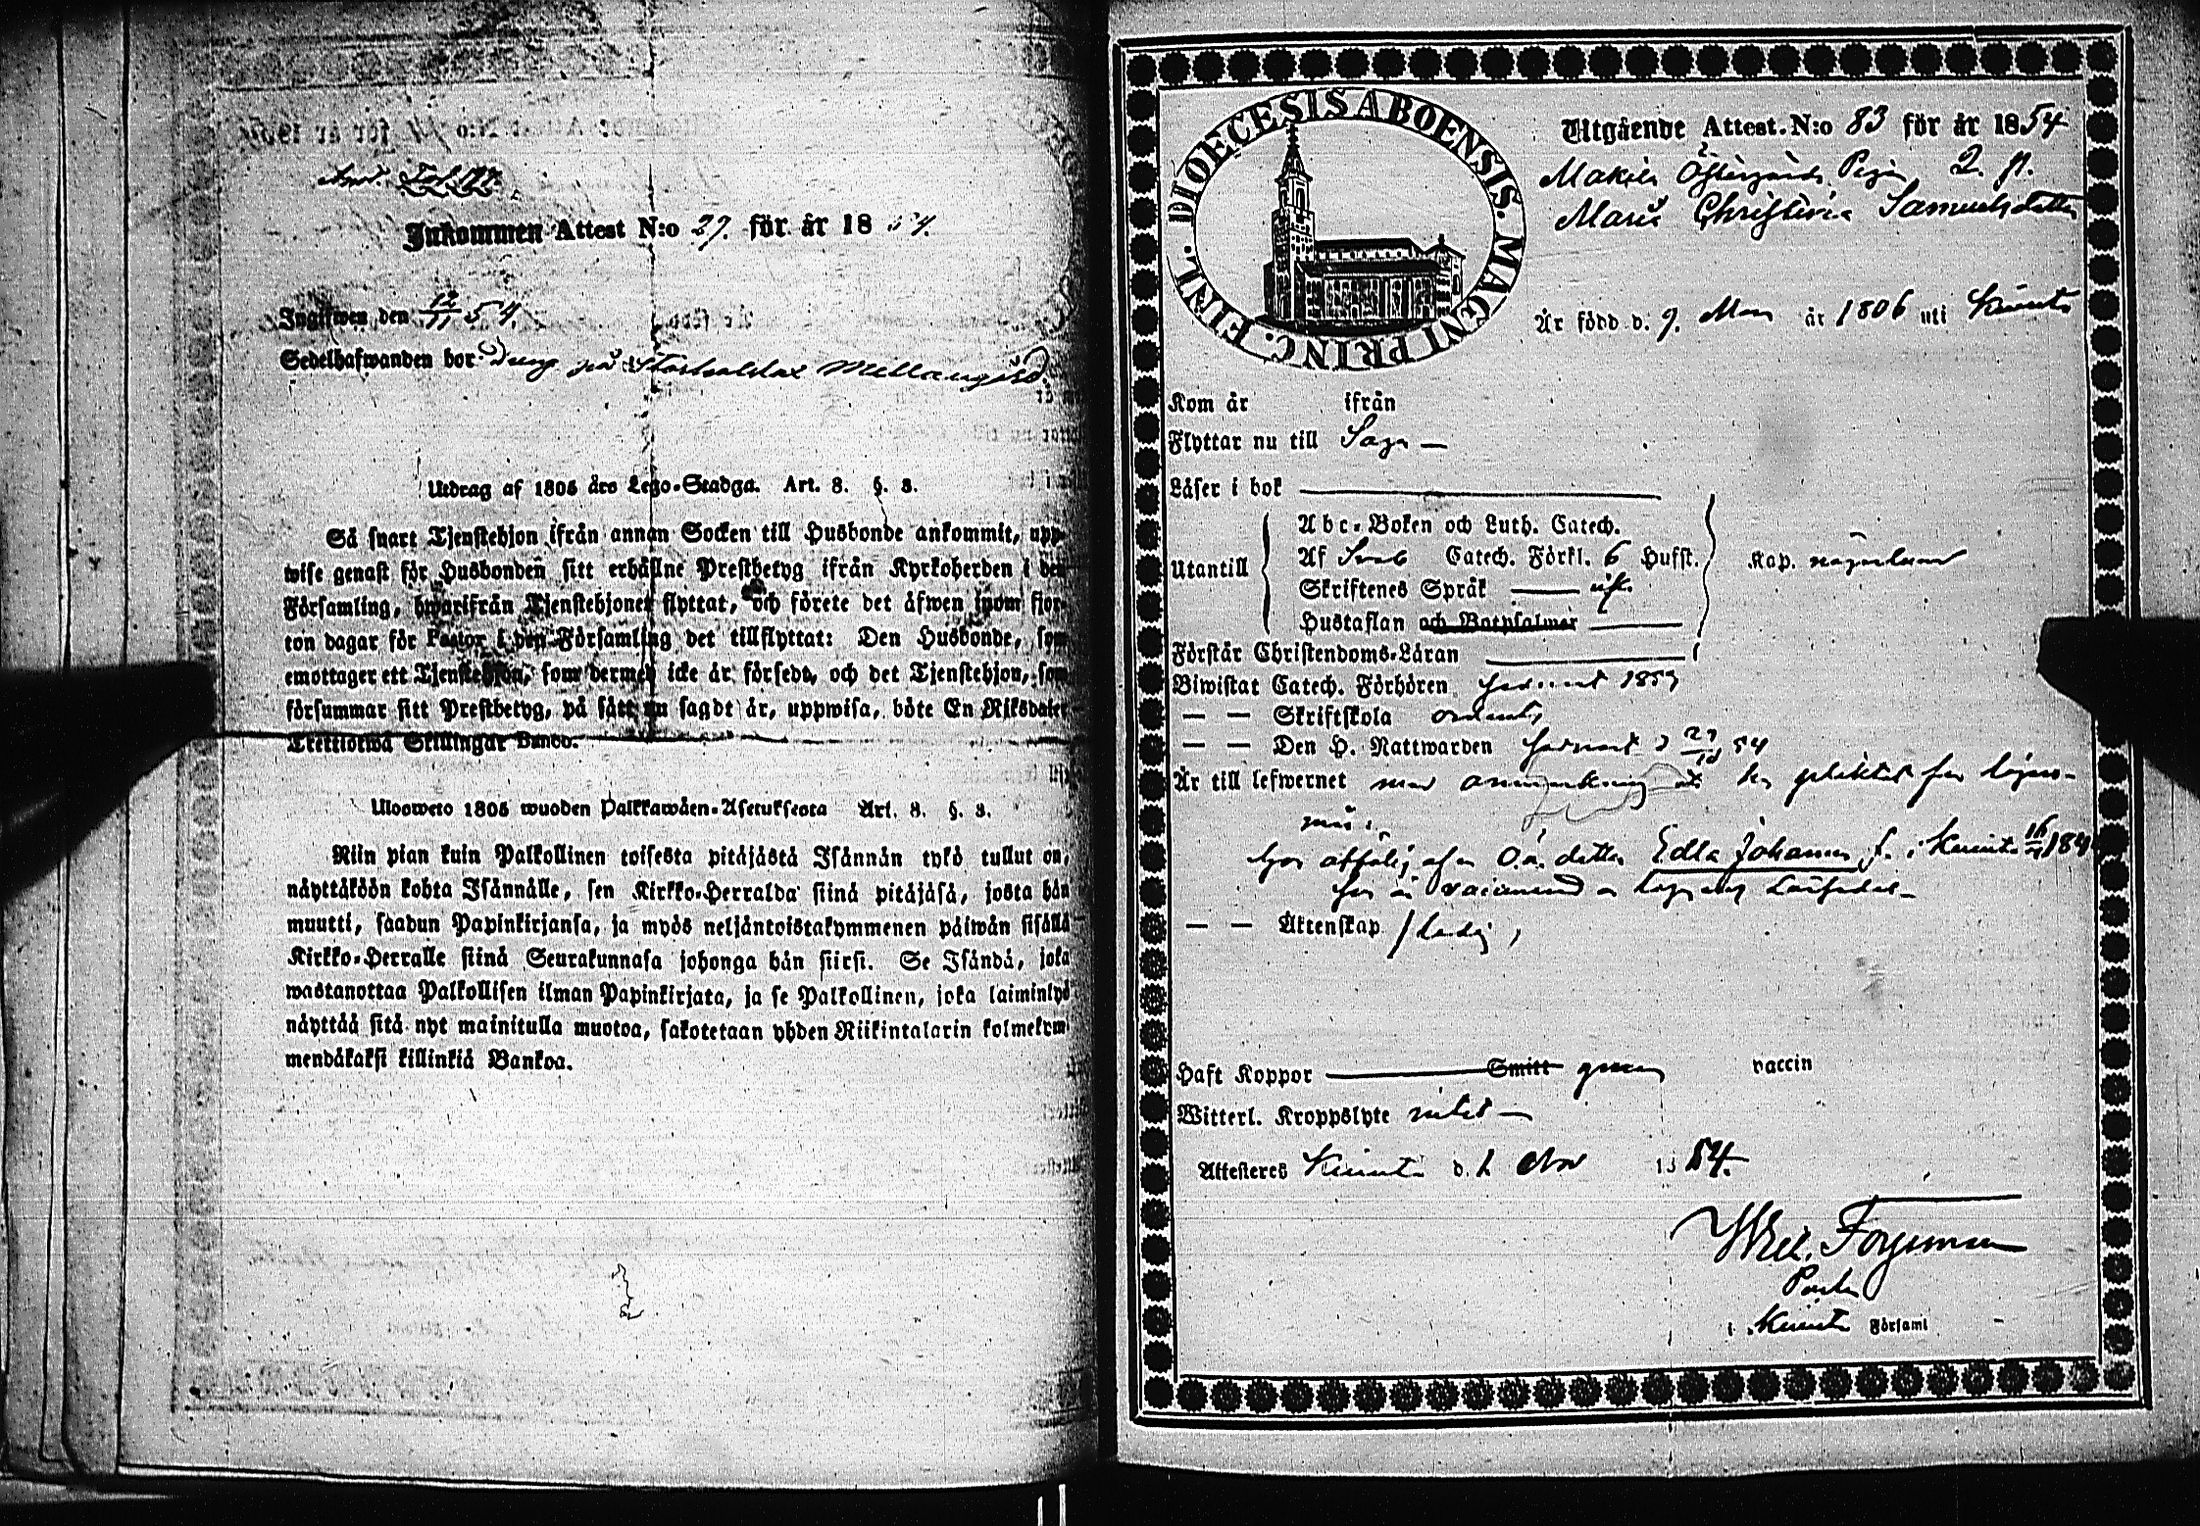 Inkommen Attest N:o 27. för år 1854.
Ingifwen den 12/11 54.
Sedelhafwanden bor Dreng på Storhaldax Mellangård.
Utdrag af 1805 års Lego-Stadga. Art. 8. §. 3.
Så snart Tjenstehjon ifrån annan Socken till Husbonde ankommit, upp-
wise genast för Husbonden sitt erhållne Prestbetyg ifrån Kyrkoherden i den
Församling, hwarifrån Tjenstehjonet flyttat, och förete det äfwen inom fjor-
ton dagar för Pastor i den Församling det tillflyttat: Den Husbonde, som
emottager ett Tjenstehjon, som dermed icke är försedt, och det Tjenstehjon, som
försummar sitt Prestbetyg, på sätt nu sagdt är, uppwisa, böte En Riksdaler
Trettiotwå Skillingar Banco.
Ulosweto 1805 wuoden Palkkawäen-Asetuksesta Art. 8. §. 3.
Niin pian kuin Palkollinen toisesta pitäjästä Isännän tykö tullut on,
näyttäköön kohta Isännälle, sen Kirkko-Herralda siinä pitäjäsä, josta hän
muutti, saadun Papinkirjansa, ja myös neljäntoistakymmenen päiwän sisällä
Kirkko-Herralle siinä Seurakunnasa johonga hän siirsi. Se Isändä, joka
wastanottaa Palkollisen ilman Papinkirjata, ja se Palkollinen, joka laiminlyö
näyttää sitä nyt mainitulla muotoa, sakotetaan yhden Riikintalarin kolmekym-
mendäkaksi killinkiä Bankoa.
DIOECESIS ABOENSIS. MAGNI PRINC. FINL.
Utgående Attest. N:o 83 för år 1854
Makila Östergårds Pigan
Maria Christina Samuelsdotter
Är född d. 9. Mars år 1806 uti Kimito
Kom år ifrån
Flyttar nu till Sagu —
Läser i bok
Utantill
Abc-Boken och Luth. Catech.
Af Sveb Catech. Förkl. 6 Hufst.
Skriftenes Språk
Hustaflan och Botpsalmer
Kap. någorlunda
Förstår Christendoms-Läran
Biwistat Catech. Förhören 1854
— — Skriftskola
— — Den H. Nattwarden senast d 29/10 54
Är till lefwernet med anmärkning at
har o.ä. dotter Edla Johanna f. i Kimito
— — Äktenskap ledig
Haft Koppor Smitt genom vaccin
Witterl. Kroppslyte intet —
Attesteras Kimito d. 2 Nov 1854.
Pastor
i Kimito Församl